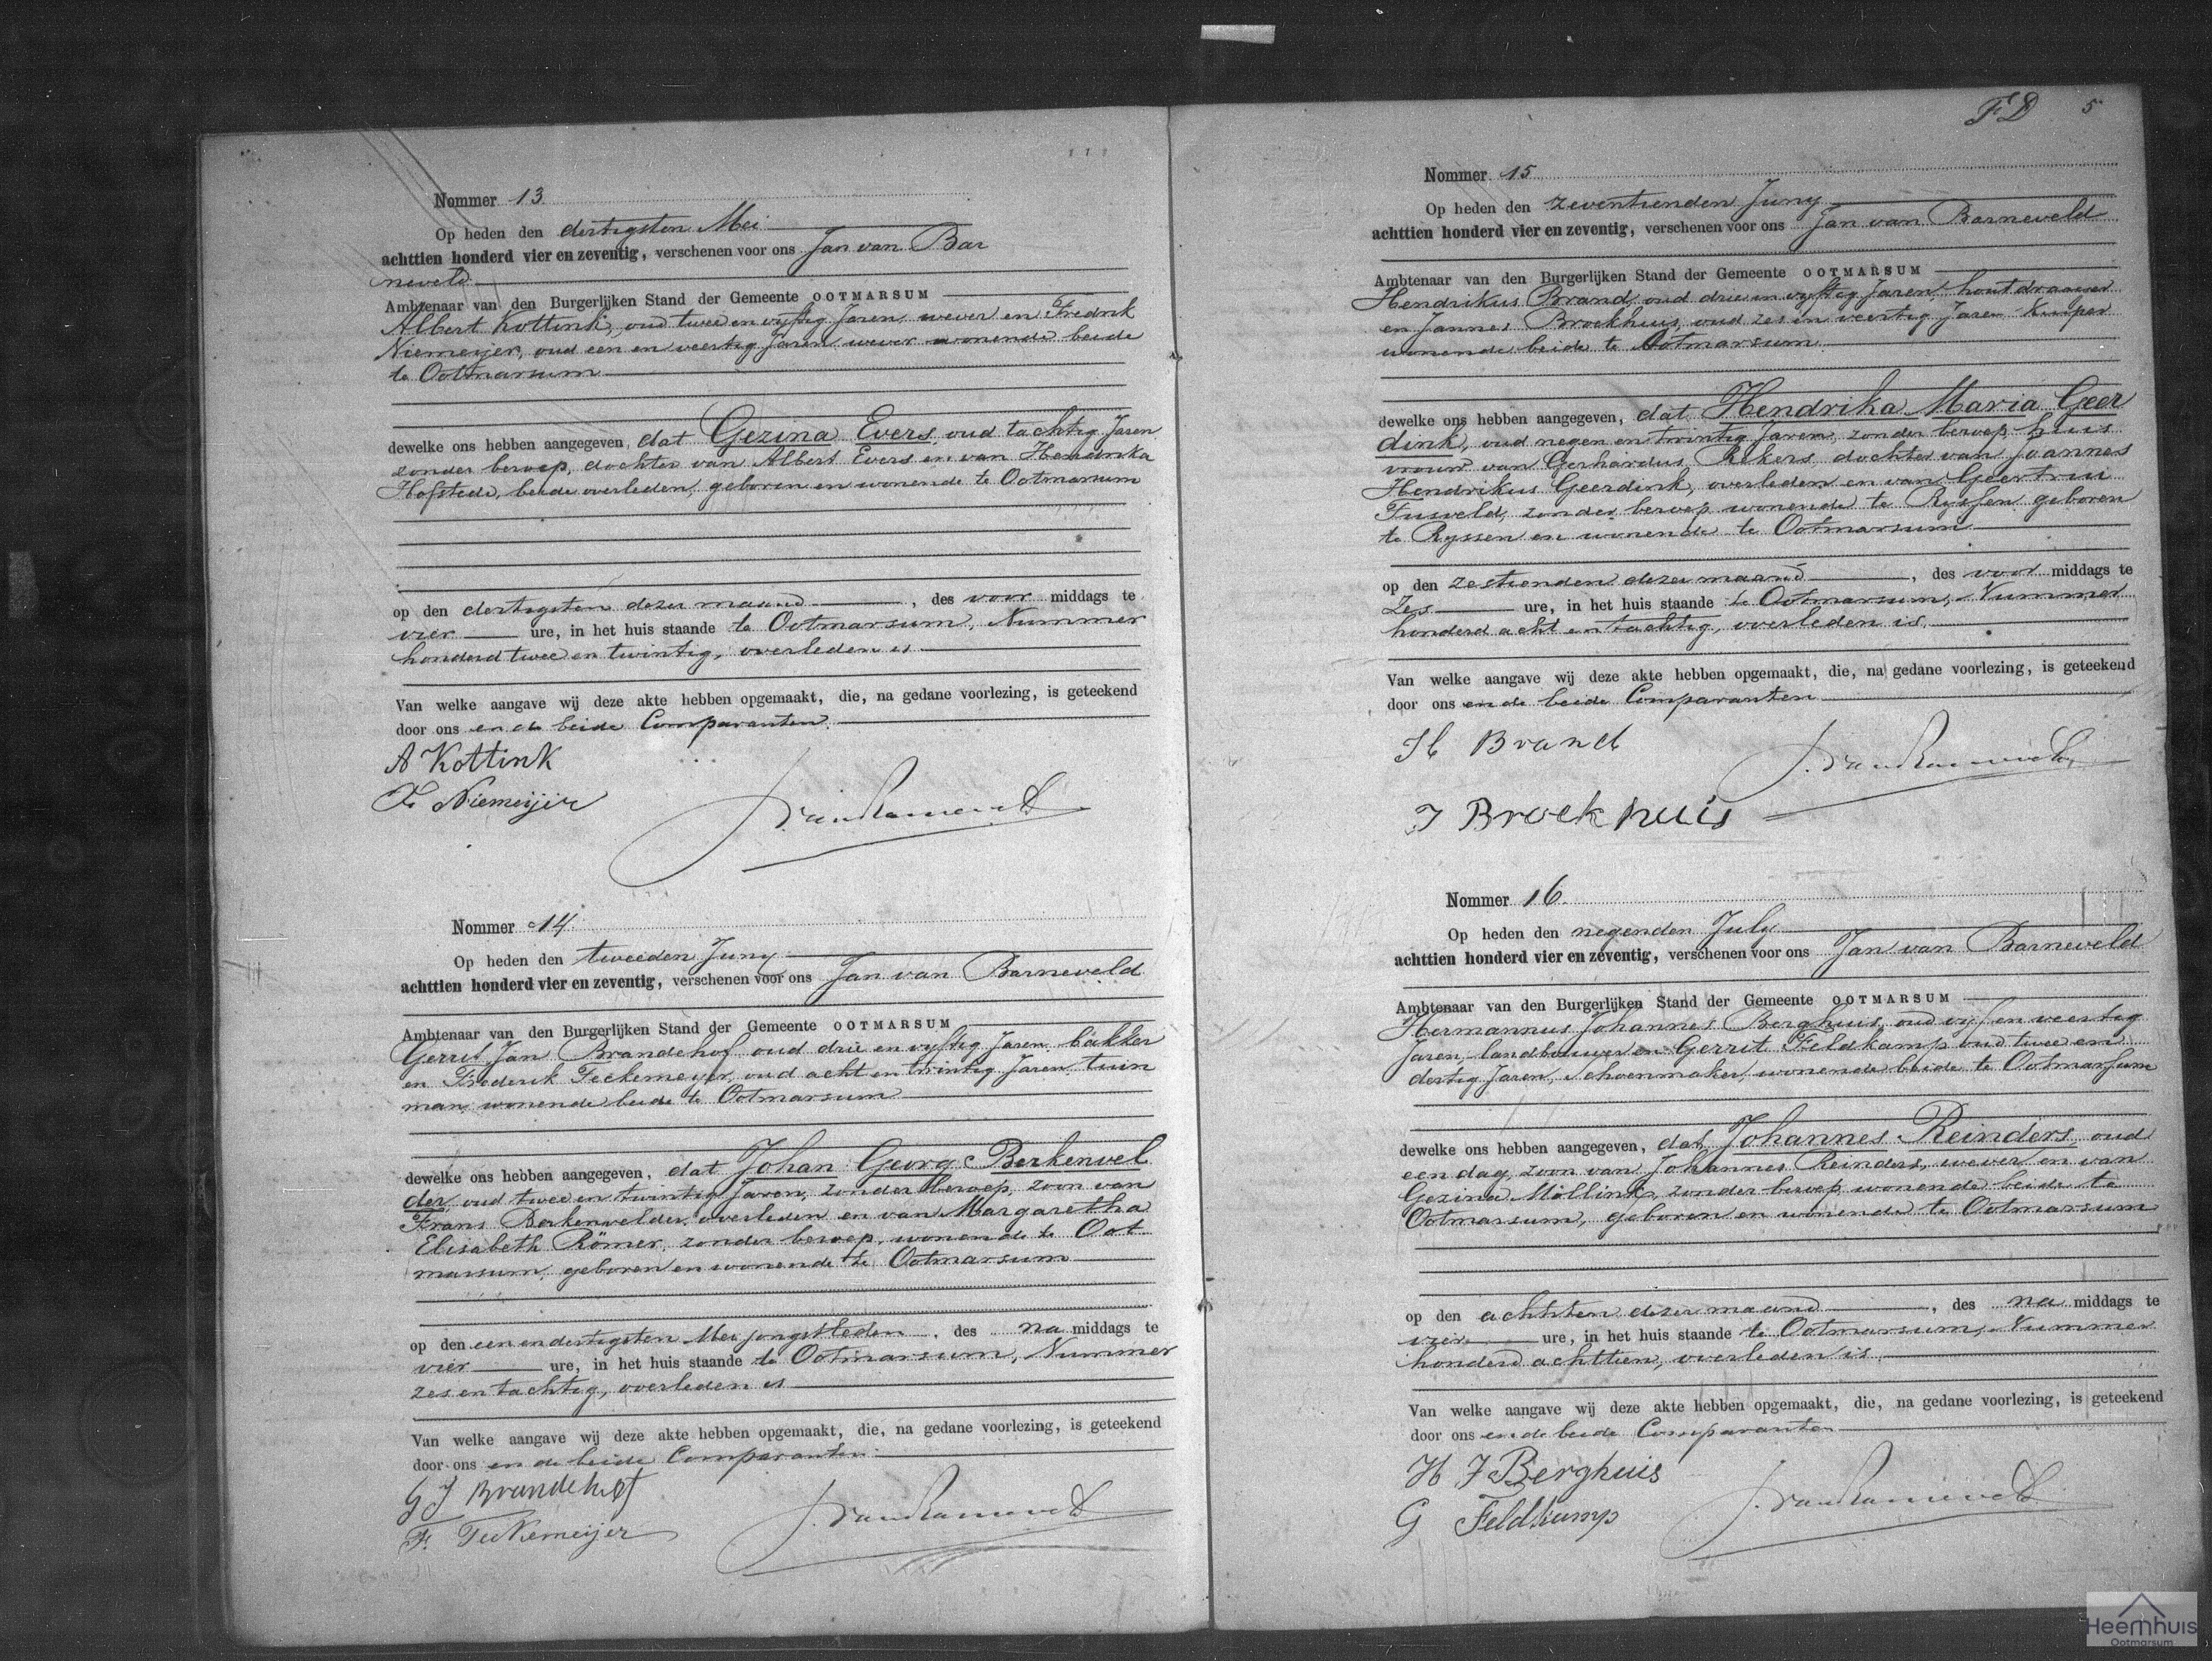 Nommer 13
Op heden den dertigsten Mei
achttien honderd vier en zeventig, verschenen voor ons Jan van Bar
neveld
Ambtenaar van den Burgerlijken Stand der Gemeente OOTMARSUM
Albert Kottink, oud twee en vyftig Jaren, wever en Fredrik
Niemeijer, oud een en veertig Jaren wever wonende beide
te Ootmarsum
dewelke ons hebben aangegeven, dat Gezina Evers, oud tachtig Jaren
zonder beroep, dochter van Albert Evers en van Hendrika
Hofstede, beide overleden, geboren en wonende te Ootmarsum
op den dertigsten dezer maand, des voor middags te
vier ure, in het huis staande te Ootmarsum, Nummer
honderd twee en twintig, overleden is
Van welke aangave wij deze akte hebben opgemaakt, die, na gedane voorlezing, is geteekend
door ons en de beide Comparanten.
A Kottink
F Niemeijer
J. van Barneveld
Nommer 14
Op heden den tweeden Juny
achttien honderd vier en zeventig, verschenen voor ons Jan van Barneveld
Ambtenaar van den Burgerlijken Stand der Gemeente OOTMARSUM
Gerrit Jan Brandehof oud drie en vyftig Jaren, bakker
en Frederik Teckemeyer, oud acht en twintig Jaren, tuin
man, wonende beide te Ootmarsum
dewelke ons hebben aangegeven, dat Johan Georg Berkenvel
der, oud twee en twintig Jaren, zonder beroep, zoon van
Frans Berkenvelder, overleden en van Margaretha
Elisabeth Römer, zonder beroep, wonende te Oot
marsum, geboren en wonende te Ootmarsum
op den een en dertigsten Mei jongstleden, des na middags te
vier ure, in het huis staande te Ootmarsum, Nummer
zes en tachtig, overleden is
Van welke aangave wij deze akte hebben opgemaakt, die, na gedane voorlezing, is geteekend
door ons en de beide Comparanten.
G J Brandehof
F. Tekemeijer
J. van Barneveld
FD 5
Nommer 15
Op heden den zeventienden Juny
achttien honderd vier en zeventig, verschenen voor ons Jan van Barneveld
Ambtenaar van den Burgerlijken Stand der Gemeente OOTMARSUM
Hendrikus Brand, oud drie en vyftig Jaren, houtdraaier
en Jannes Broekhuis, oud zes en veertig Jaren Kuiper
wonende beide te Ootmarsum
dewelke ons hebben aangegeven, dat Hendrika Maria Geer
dink, oud negen en twintig Jaren, zonder beroep, huis
vrouw van Gerhardus Rekers, dochter van Joannes
Hendrikus Geerdink, overleden en van Geertrui
zonder beroep wonende te Ryssen geboren
te Ryssen en wonende te Ootmarsum
op den zestienden dezer maand, des voor middags te
zes ure, in het huis staande te Ootmarsum, Nummer
honderd acht en tachtig, overleden is.
Van welke aangave wij deze akte hebben opgemaakt, die, na gedane voorlezing, is geteekend
door ons en de beide Comparanten
H Brand
J. van Barneveld
J Broekhuis
Nommer 16.
Op heden den negenden July
achttien honderd vier en zeventig, verschenen voor ons Jan van Barneveld
Ambtenaar van den Burgerlijken Stand der Gemeente OOTMARSUM
Hermannus Johannes Berghuis, oud vyf en veertig
Jaren, landbouwer en Gerrit Feldkamp oud twee en
dertig Jaren, Schoenmaker, wonende beide te Ootmarsum
dewelke ons hebben aangegeven, dat Johannes Reinders, oud
een dag, zoon van Johannes Reinders, wever en van
Gezina Möllink, zonder beroep wonende beide te
Ootmarsum, geboren en wonende te Ootmarsum
op den achtsten dezer maand, des na middags te
vier ure, in het huis staande te Ootmarsum, Nummer
honderd achttien, overleden is
Van welke aangave wij deze akte hebben opgemaakt, die, na gedane voorlezing, is geteekend
door ons en de beide Comparanten
H J Berghuis
G Feldkamp
J. van Barneveld
Heemhuis
Ootmarsum